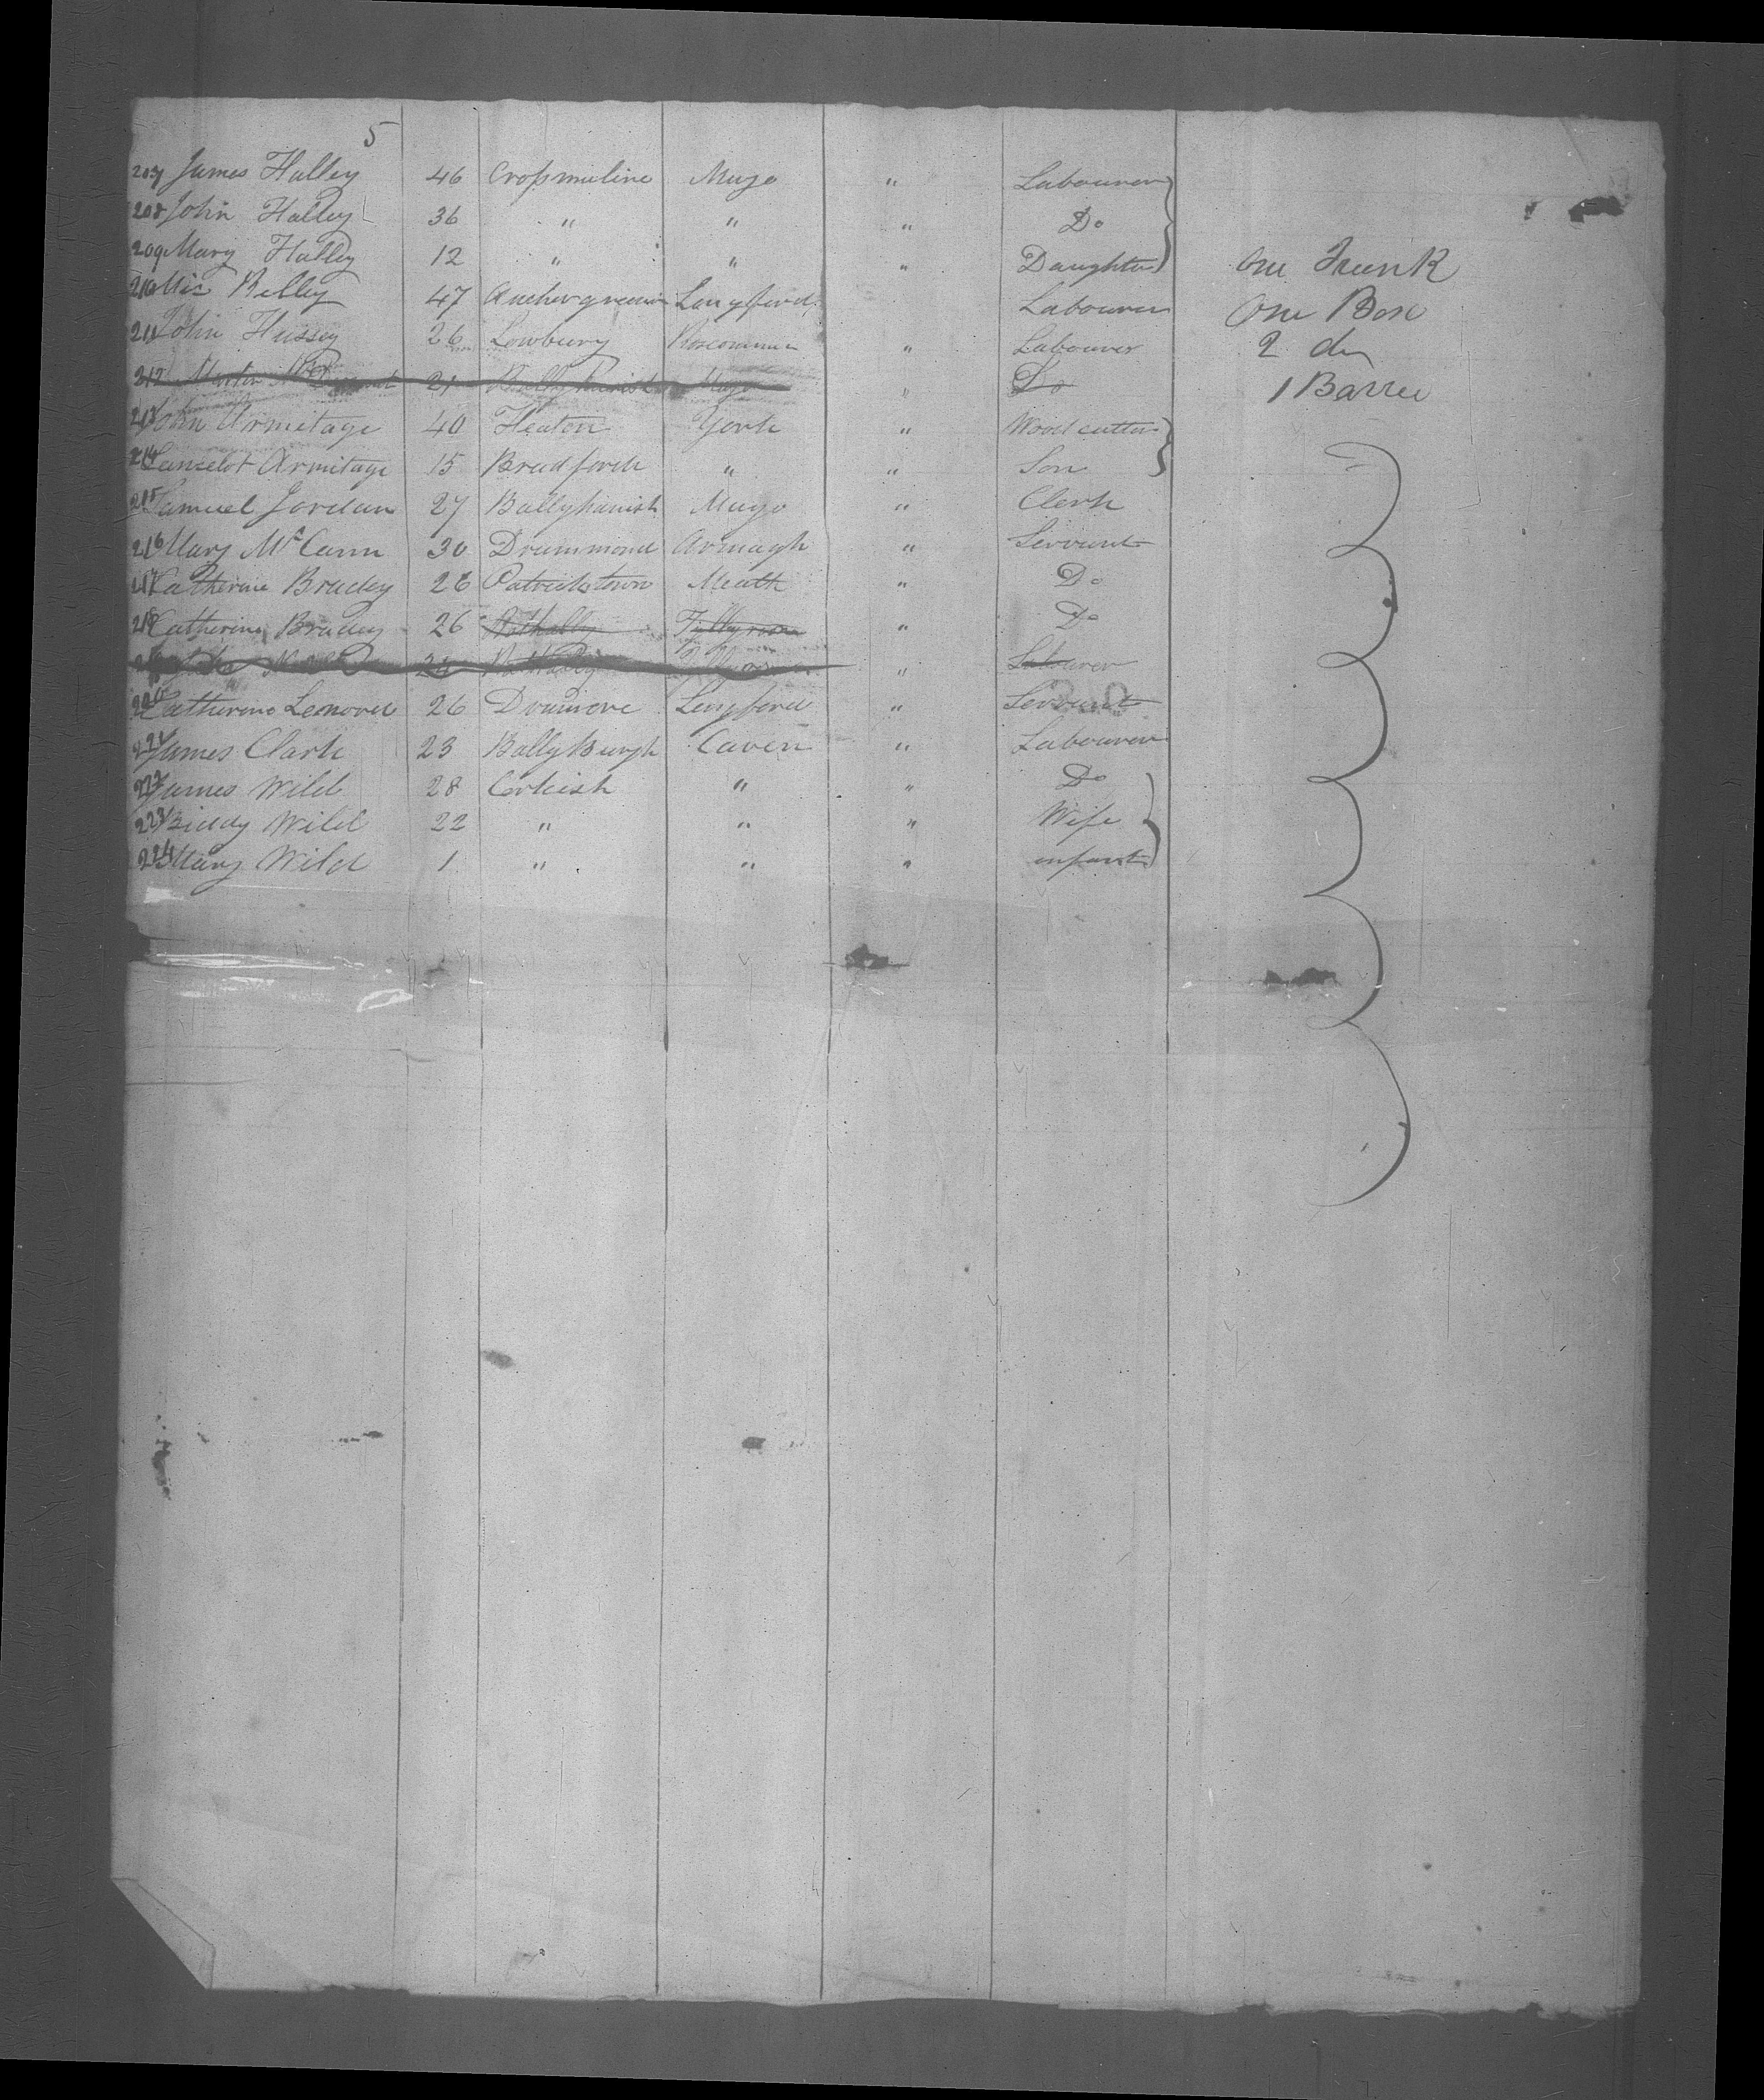 5
207 James Halley 46 Crossmuline Mayo " Labourer
208 John Halley 36 " " " Do
209 Mary Halley 12 " " " Daughter One Trunk
210 Reilly 47 Longford Labourer One Box
211 John Hussey 26 Lowbury Roscommon " Labourer 2 do
212 Martin 21 Mayo " Do 1 Barrel
213 John Armitage 40 Heaton York " Wood cutter
214 Lancelot Armitage 15 Bradforth " " Son
215 Samuel Jordan 27 Ballyhanish Mayo " Clerk
216 Mary McCann 30 Drummond Armagh " Servant
217 Catherine Bradey 26 Patrickstown Meath " Do
218 Catherine Bradey 26 " Do
24 " Labourer
220 Catherine Lenord 26 Drumore Longford " Servant
221 James Clark 23 BallyBurgh Caven " Labourer
222 James Wild 28 Corkish " " Do
223 Biddy Wild 22 " " " Wife
224 Mary Wild 1 " " " infant